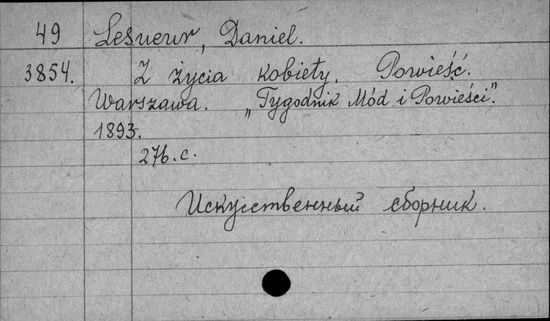 49 Lesueur, Daniel.
3854. Z życia kobiety. Powieść.
Warszawa. „Tygodnik Mód i Powieści”.
1893.
276. c.
Искусственный сборник.